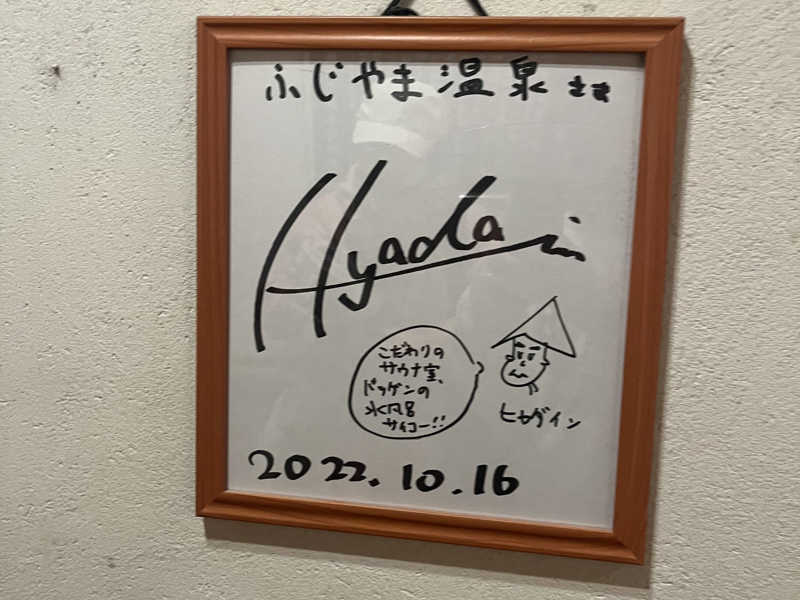 ふじやま温泉さま
Hyadain
こだわりの
サウナ室、
ドッゲンの
水風呂
サイコー!!
ヒャダイン
2022.10.16